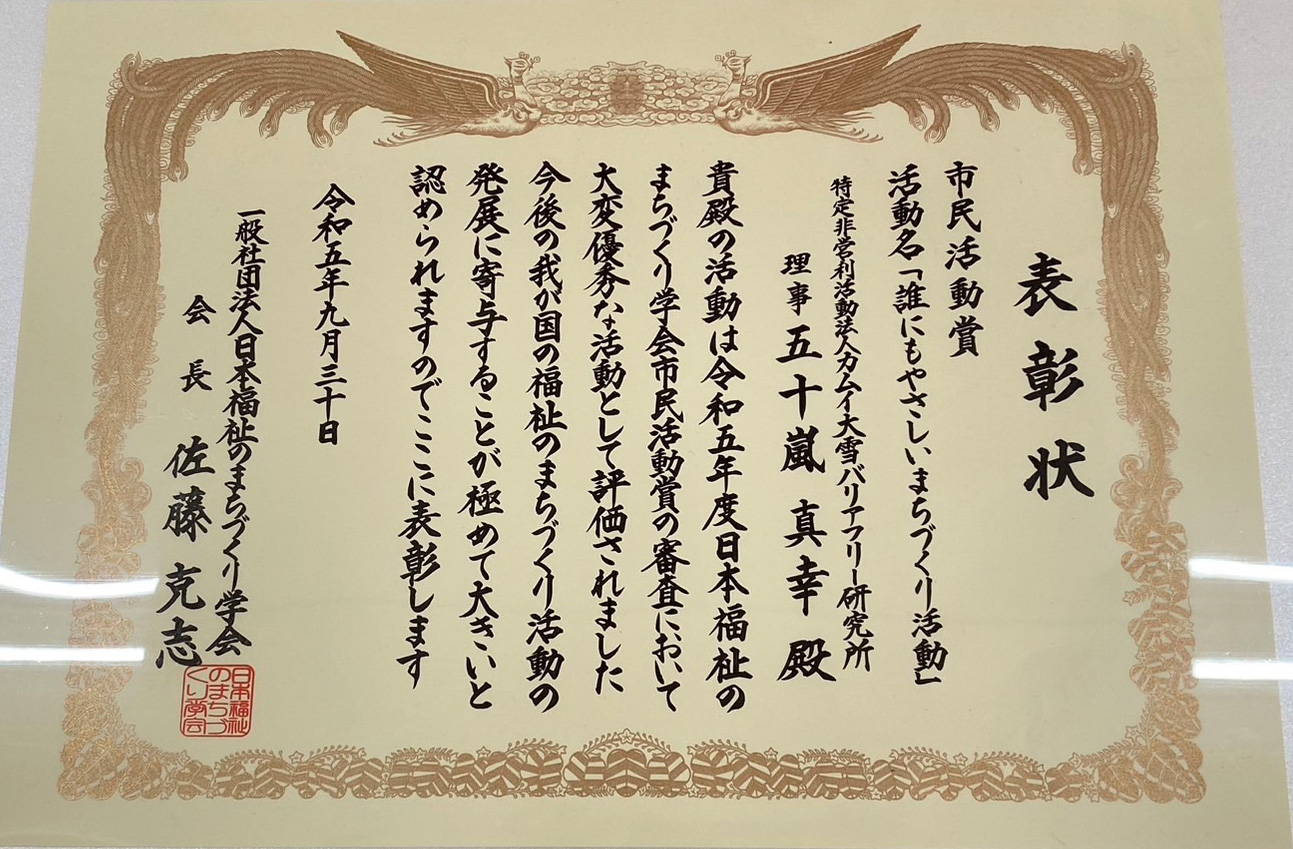 表彰状
市民活動賞
活動名「誰にもやさしいまちづくり活動」
特定非営利活動法人カムイ大雪バリアフリー研究所
理事 五十嵐 真幸 殿
貴殿の活動は令和五年度日本福祉の
まちづくり学会市民活動賞の審査において
大変優秀な活動として評価されました
今後の我が国の福祉のまちづくり活動の
発展に寄与することが極めて大きいと
認められますのでここに表彰します
令和五年九月三十日
一般社団法人日本福祉のまちづくり学会
会長 佐藤 克志
日本福祉
のまちづ
くり学会